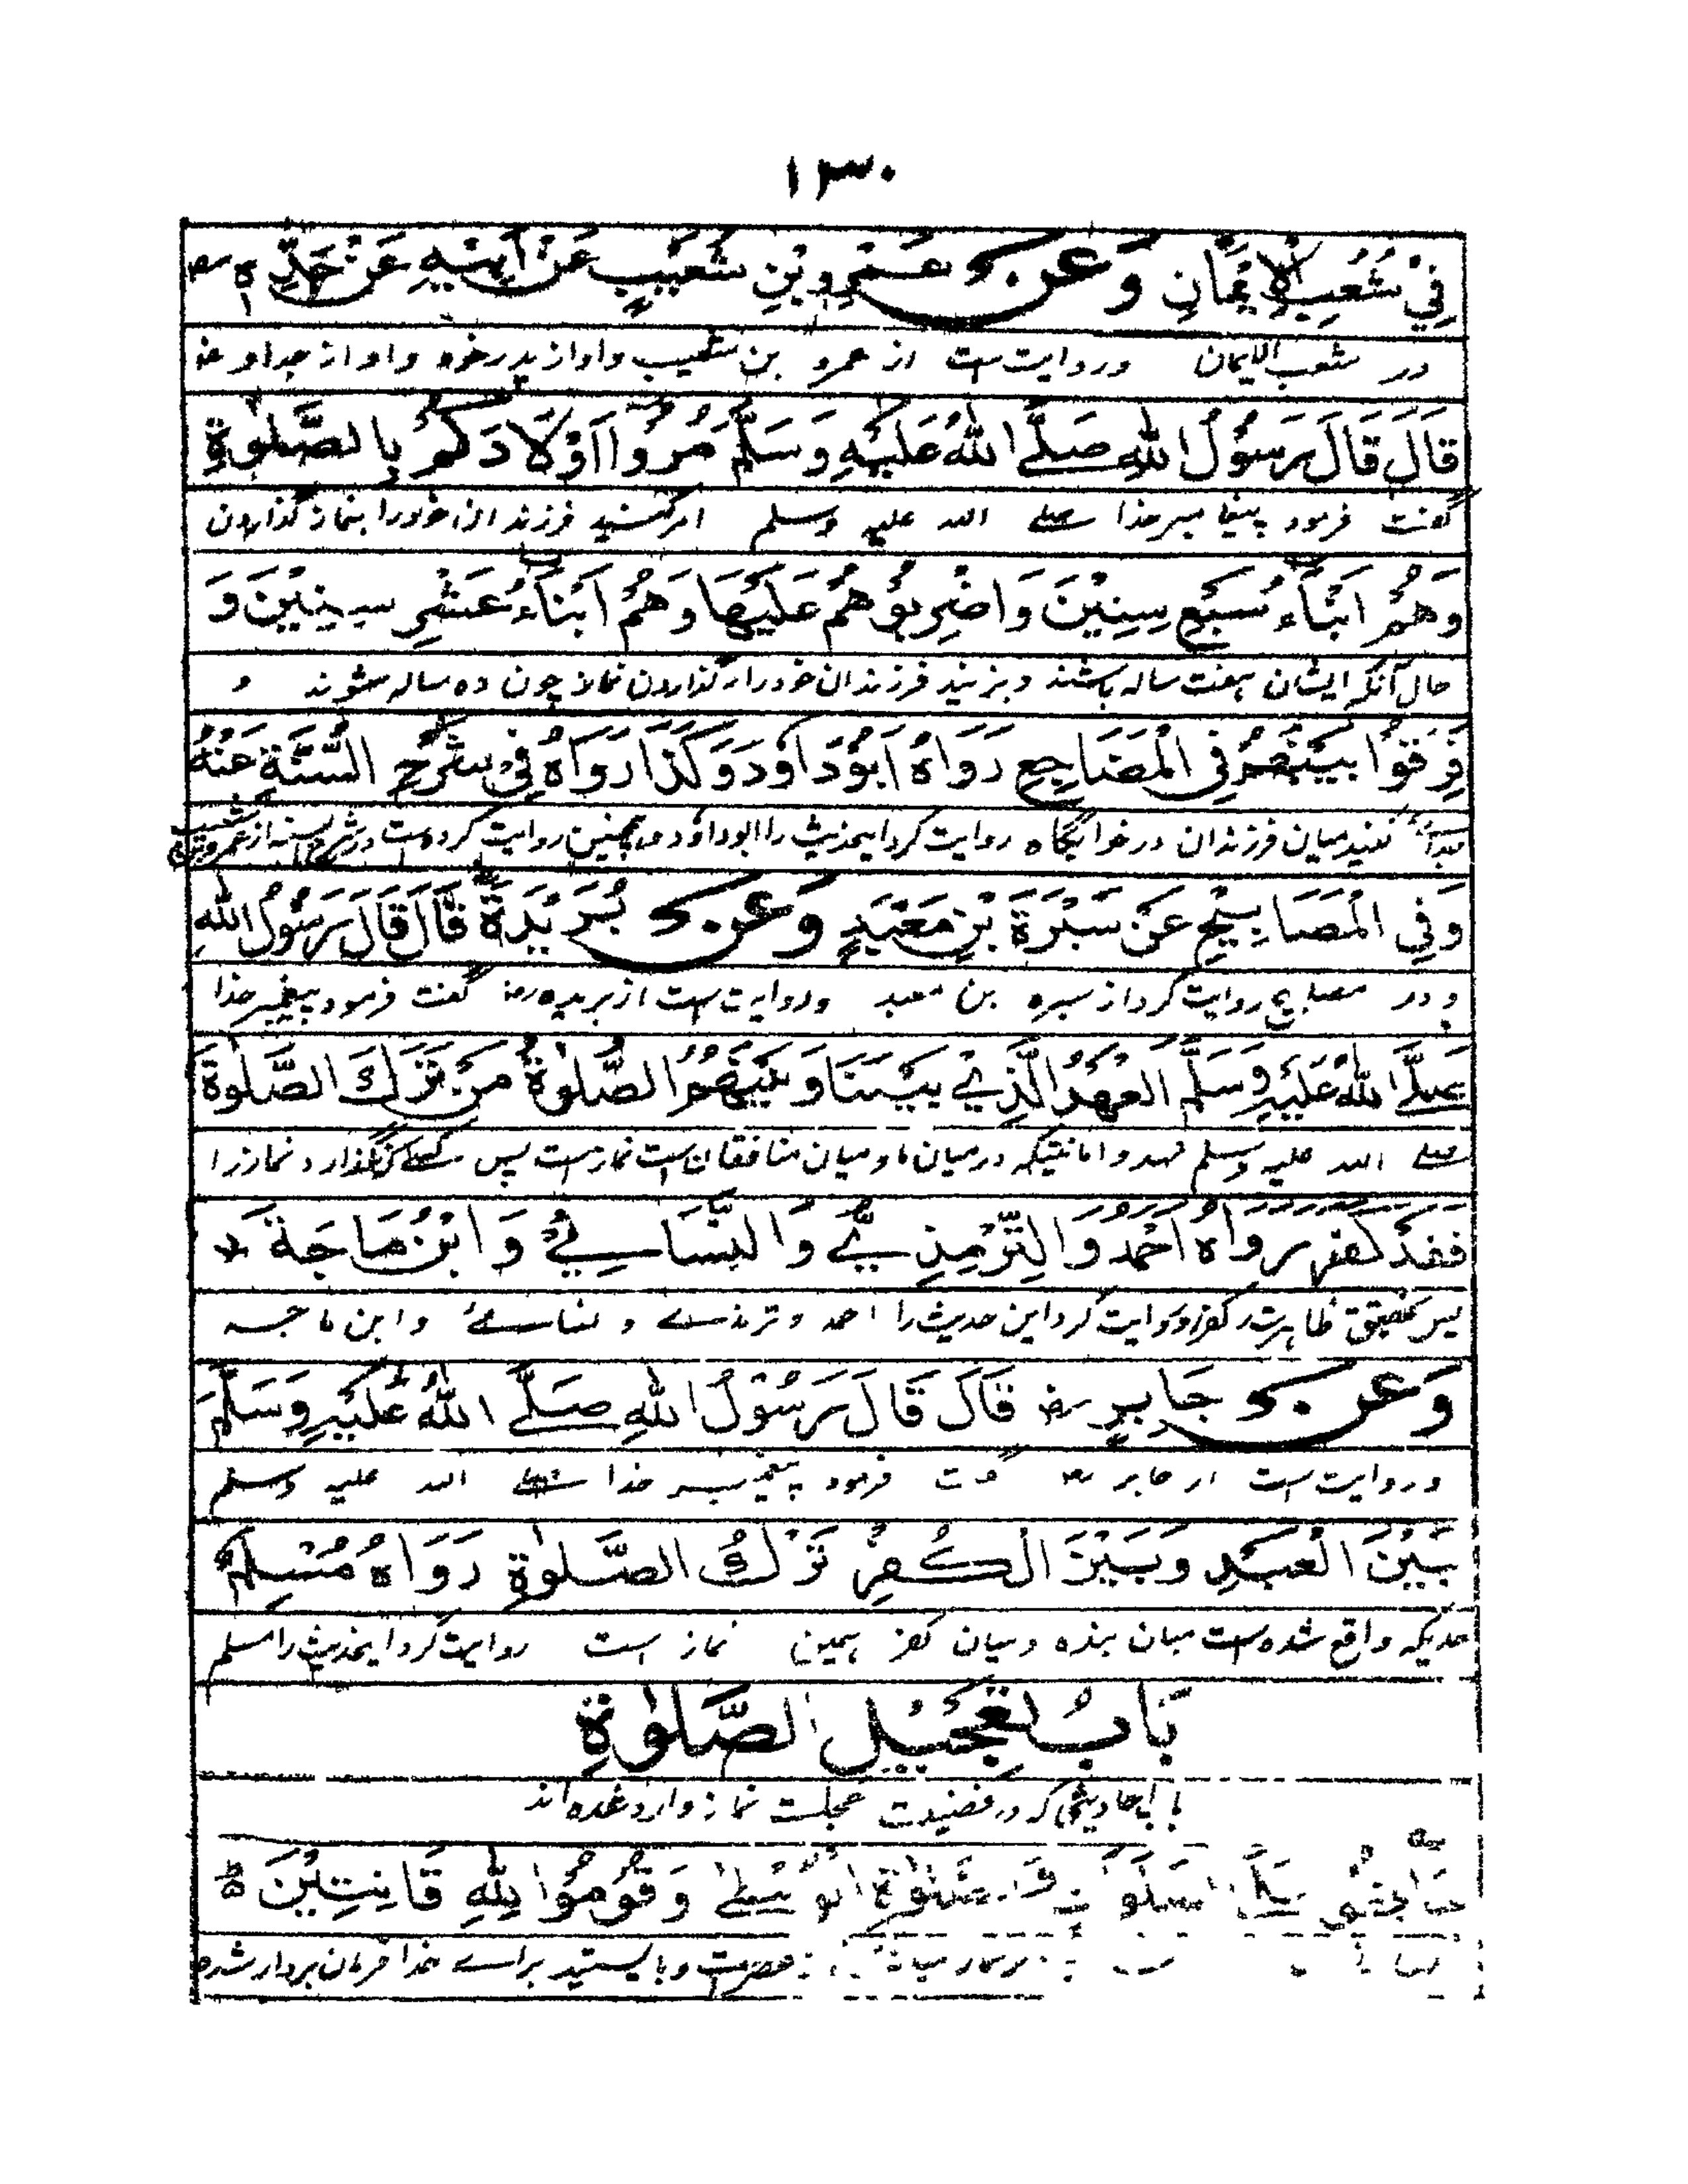 ۱۳۰
فِيْ شُعَبِ الْاِيْمَانِ وَعَنْ عَمْرِو بْنِ شُعَيْبٍ عَنْ اَبِيْهِ عَنْ جَدِّهٖ رض
در شعب الایمان وروایت ست از عمرو بن شعیب واواز پدر خود واواز جد او رض
قَالَ قَالَ رَسُوْلُ اللّٰهِ صَلَّے اللّٰهُ عَلَيْهِ وَسَلَّمَ مُرُوْا اَوْلَادَكُمْ بِالصَّلٰوةِ
گفت فرمود پیغامبر خدا صلے الله علیه وسلم امر کنید فرزندان خود را بنماز گذاردن
وَهُمْ اَبْنَاءُ سَبْعِ سِنِيْنَ وَاضْرِبُوْهُمْ عَلَيْهَا وَهُمْ اَبْنَاءُ عَشْرِ سِنِيْنَ وَ
حال آنکه ایشان هفت ساله باشند وبزنید فرزندان خود را بر گذاردن نماز چون ده ساله شوند و
فَرِّقُوْا بَيْنَهُمْ فِي الْمَضَاجِعِ رَوَاهُ اَبُوْ دَاوُدَ وَكَذَا رَوَاهُ فِيْ شَرْحِ السُّنَّةِ عَنْهُ
جدا کنید میان فرزندان در خوابگاه روایت کرد ایحدیث را ابو داود و همچنین روایت کرده ست در شرح السنه از عمرو بن شعیب
وَفِي الْمَصَابِيْحِ عَنْ سَبْرَةَ بْنِ مَعْبَدٍ وَعَنْ بُرَيْدَةَ قَالَ قَالَ رَسُوْلُ اللّٰهِ
و در مصابیح روایت کرد از سبره بن معبد وروایت ست از بریده رض گفت فرمود پیغمبر خدا
صَلَّے اللّٰهُ عَلَيْهِ وَسَلَّمَ الْعَهْدُ الَّذِيْ بَيْنَنَا وَبَيْنَهُمُ الصَّلٰوةُ مَنْ تَرَكَ الصَّلٰوةَ
صلے الله علیه وسلم عهد و امانتیکه درمیان ما ومیان منافقان ست نماز ست پس کسے که بگذارد نماز را
فَقَدْ كَفَرَ رَوَاهُ اَحْمَدُ وَالتِّرْمِذِيُّ وَالنَّسَائِيُّ وَابْنُ مَاجَةَ *
پس بتحقیق ظاهر کرد کفر وروایت کرد این حدیث را احمد و ترمذے و نسائے وابن ماجه
وَعَنْ جَابِرٍ رض قَالَ قَالَ رَسُوْلُ اللّٰهِ صَلَّے اللّٰهُ عَلَيْهِ وَسَلَّمَ
وروایت ست از جابر رض گفت فرمود پیغمبر خدا صلے الله علیه وسلم
بَيْنَ الْعَبْدِ وَبَيْنَ الْكُفْرِ تَرْكُ الصَّلٰوةِ رَوَاهُ مُسْلِمٌ
حدیکه واقع شده ست میان بنده ومیان کفر همین نماز ست روایت کرد ایحدیث را مسلم
بَابُ تَعْجِيْلِ الصَّلٰوةِ
باب احادیثی که در فضیلت عجلت نماز وارد شده اند
وَقُوْمُوْا لِلّٰهِ قَانِتِيْنَ
عصر ست وبایستید براے خدا فرمان بردار شده